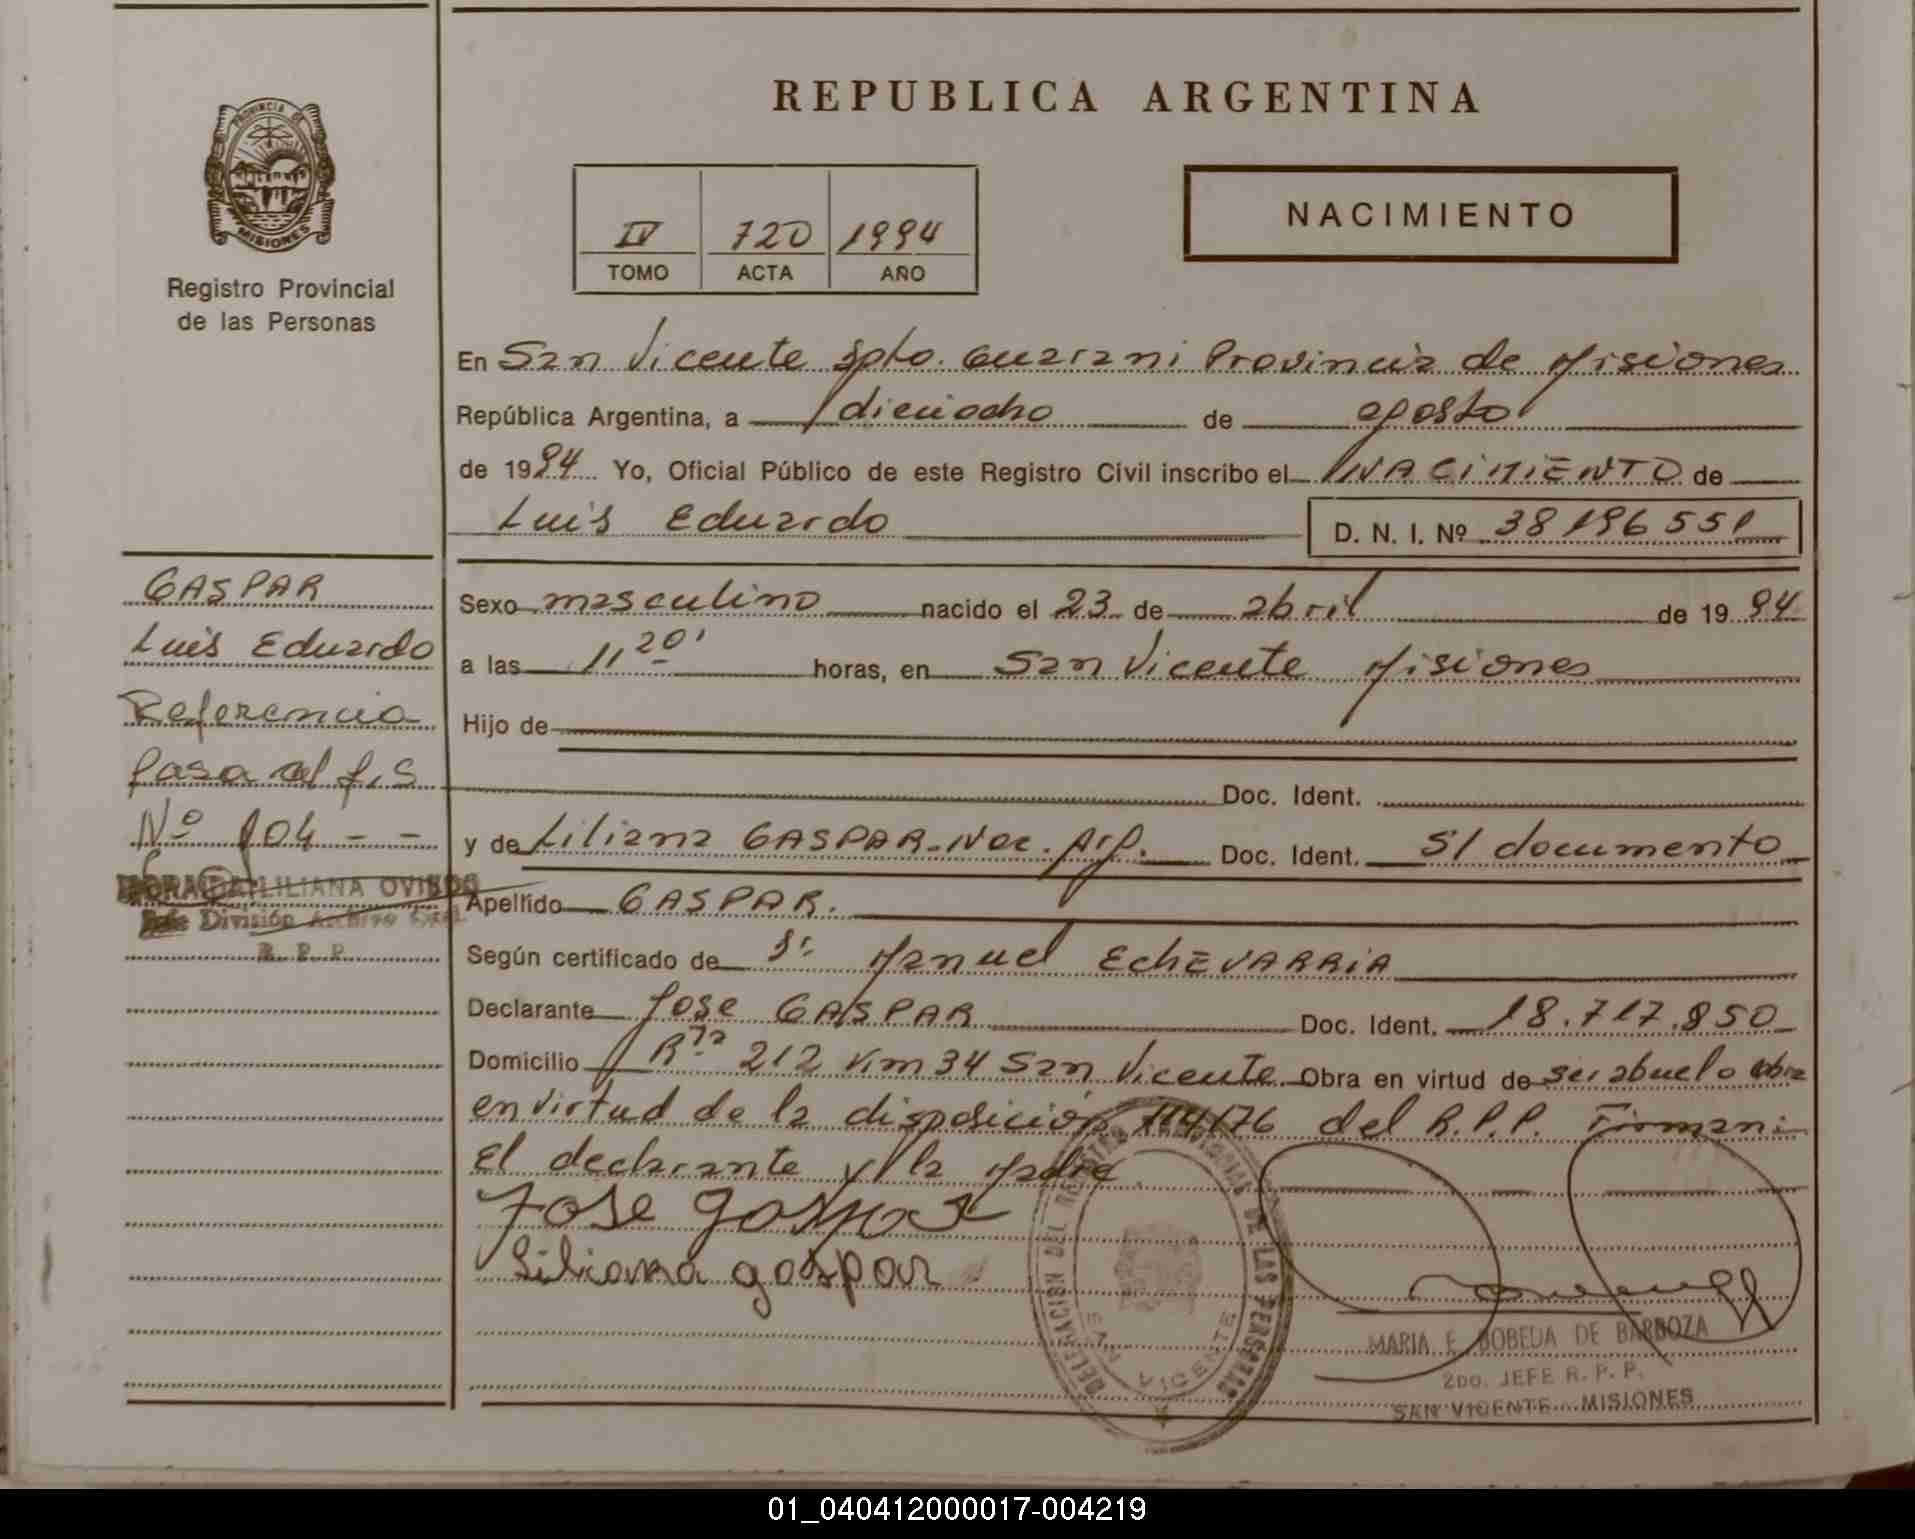 PROVINCIA DE
MISIONES
Registro Provincial
de las Personas
REPUBLICA ARGENTINA
IV 720 1994
TOMO ACTA AÑO
NACIMIENTO
En San Vicente Dpto. Guarani Provincia de Misiones
República Argentina, a dieciocho de agosto
de 1994 Yo, Oficial Público de este Registro Civil inscribo el NACIMIENTO de
Luis Eduardo
D. N. I. Nº 38196551
GASPAR
Luis Eduardo
Referencia
Pasa al f.S
Nº 104 - -
LILIANA OVIEDO
Jefe División Archivo Gral.
R. P. P.
Sexo masculino nacido el 23 de abril de 1994
a las 11 20' horas, en San Vicente Misiones
Hijo de
Doc. Ident.
y de Liliana GASPAR-Nac. Arg. Doc. Ident. S/ documento
Apellido GASPAR.
Según certificado de Manuel EcheVARRiA
Declarante Jose GASPAR Doc. Ident. 18.717.850
Domicilio Rta 212 Km 34 San Vicente Obra en virtud de ser abuelo obra
en virtud de la disposición 114/76 del R.P.P. Firman:
El declarante y la Madre.
Jose gaspar
Liliana gaspar
DELEGACION DEL REGISTRO PROVINCIAL DE LAS PERSONAS
SAN VICENTE
MARIA E. BOBEDA DE BARBOZA
2DO. JEFE R. P. P.
SAN VICENTE MISIONES
01_040412000017-004219